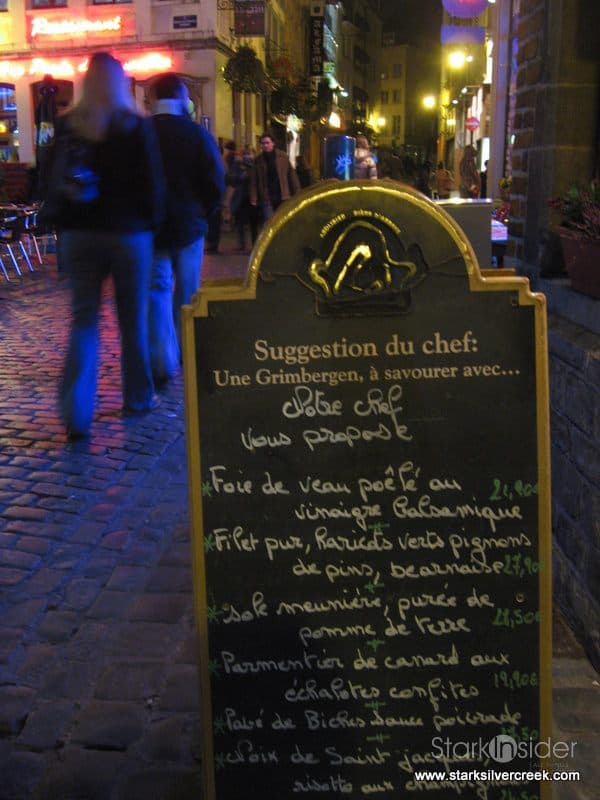 Restaurant
Suggestion du chef:
Une Grimbergen, à savourer avec...
Notre chef
vous propose
* Foie de veau poêlé au 21,90€
vinaigre balsamique
* Filet pur, haricots verts pignons
de pins, bearnaise 27,90
* Sole meunière, purée de
pomme de terre 21,50€
* Parmentier de canard aux
échalotes confites 19,90€
* Pavé de Biches sauce poivrade
* Noix de Saint jacques,
risotto aux champignons
StarkInsider
www.starksilvercreek.com